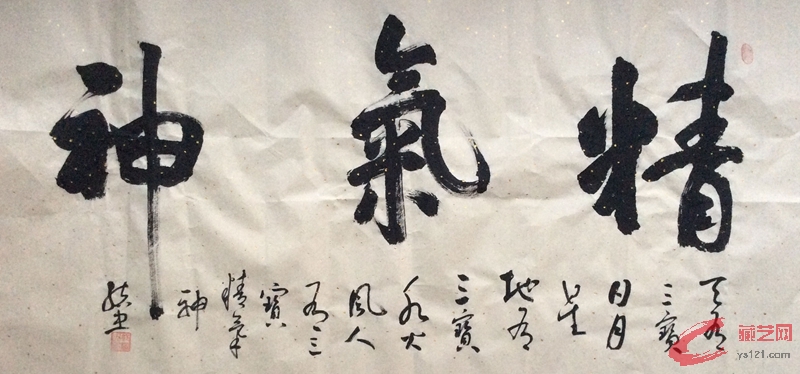 精氣神
天有
三寶
日月
星
地有
三寶
水火
風人
有三
寶
精氣
神
藏艺网
ys121.com